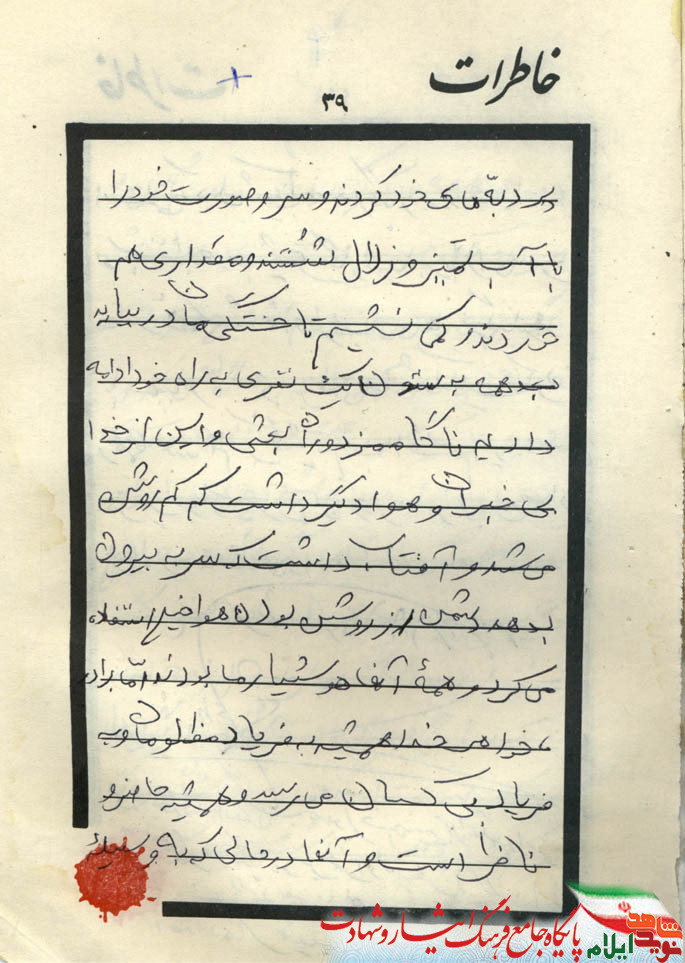 خاطرات
۳۹
پر دبّه‌های خود کردند و سر و صورت خود را
با آب تمیز و زلال شستند و مقداری هم
خوردند و کمی نشستیم تا خستگی مان در بیاید
بعد همه به ستون یک نفری به راه خود ادامه
دادیم ناگاه مزدوران بعثی و این از خدا
بی خبران و هوا دیگر داشت کم کم روشن
می شد و آفتاب داشت که سر به بیرون
بدهد دشمن از روشن بودن هوا خیلی استفاده
می کرد و همهٔ آنها هوشیار ما بودند امّا برادر
، خواهر خدا همیشه به فریاد مظلومان و به
فریاد بی کسان می رسد و همیشه حاضر و
ناظر است و آنها در حالی که به وسیلهٔ
پایگاه جامع فرهنگ ایثار و شهادت
نوید شاهد ایلام